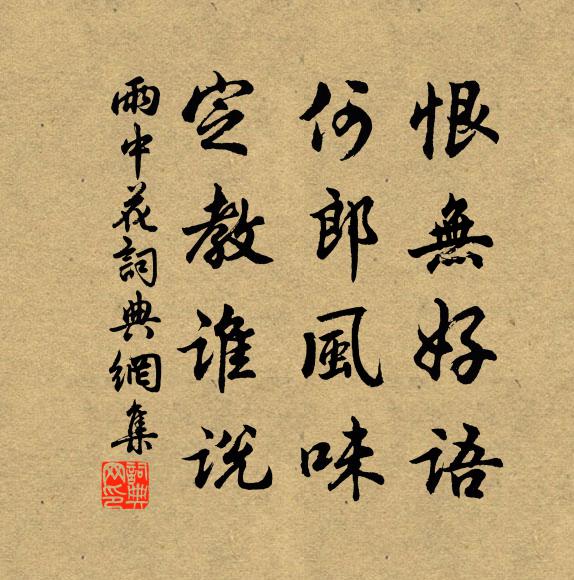 恨無好語
何郎風味
定教誰說
雨中花詞典網集
詞典網印